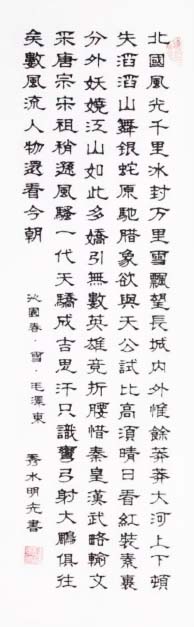 北國風光千里冰封万里雪飄望長城內外惟餘莽莽大河上下頓
失滔滔山舞銀蛇原馳腊象欲與天公試比高須晴日看紅裝素裹
分外妖嬈江山如此多嬌引無數英雄竞折腰惜秦皇漢武略輸文
采唐宗宋祖稍遜風騷一代天驕成吉思汗只識彎弓射大鵬俱往
矣數風流人物還看今朝
沁園春·雪·毛澤東
秀水明先書